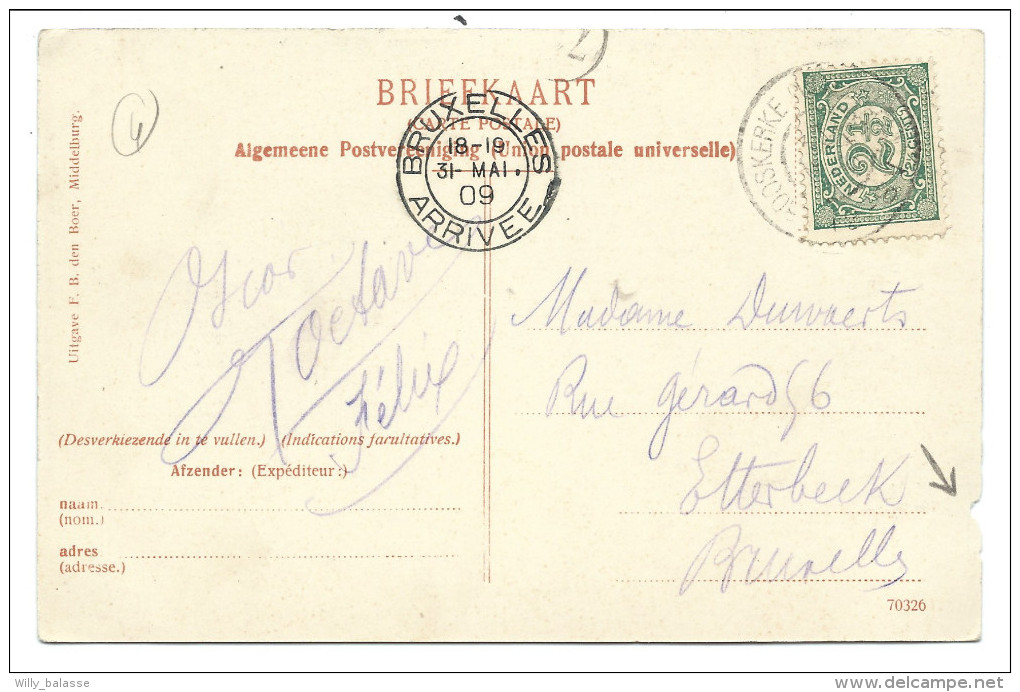 BRIEFKAART
(CARTE POSTALE)
Algemeene Postvereeniging (Union postale universelle)
BRUXELLES
18-19
31- MAI.
09
ARRIVEE
OOSKERKE
NEDERLAND
2½
Uitgave F. B. den Boer, Middelburg.
4
Oscar
Octave
Félix
Madame
Rue Gérard 56
Etterbeek
Bruxelles
(Desverkiezende in te vullen.) (Indications facultatives.)
Afzender: (Expéditeur:)
naam.
(nom.)
adres
(adresse.)
70326
Willy_balasse
www.delcampe.net